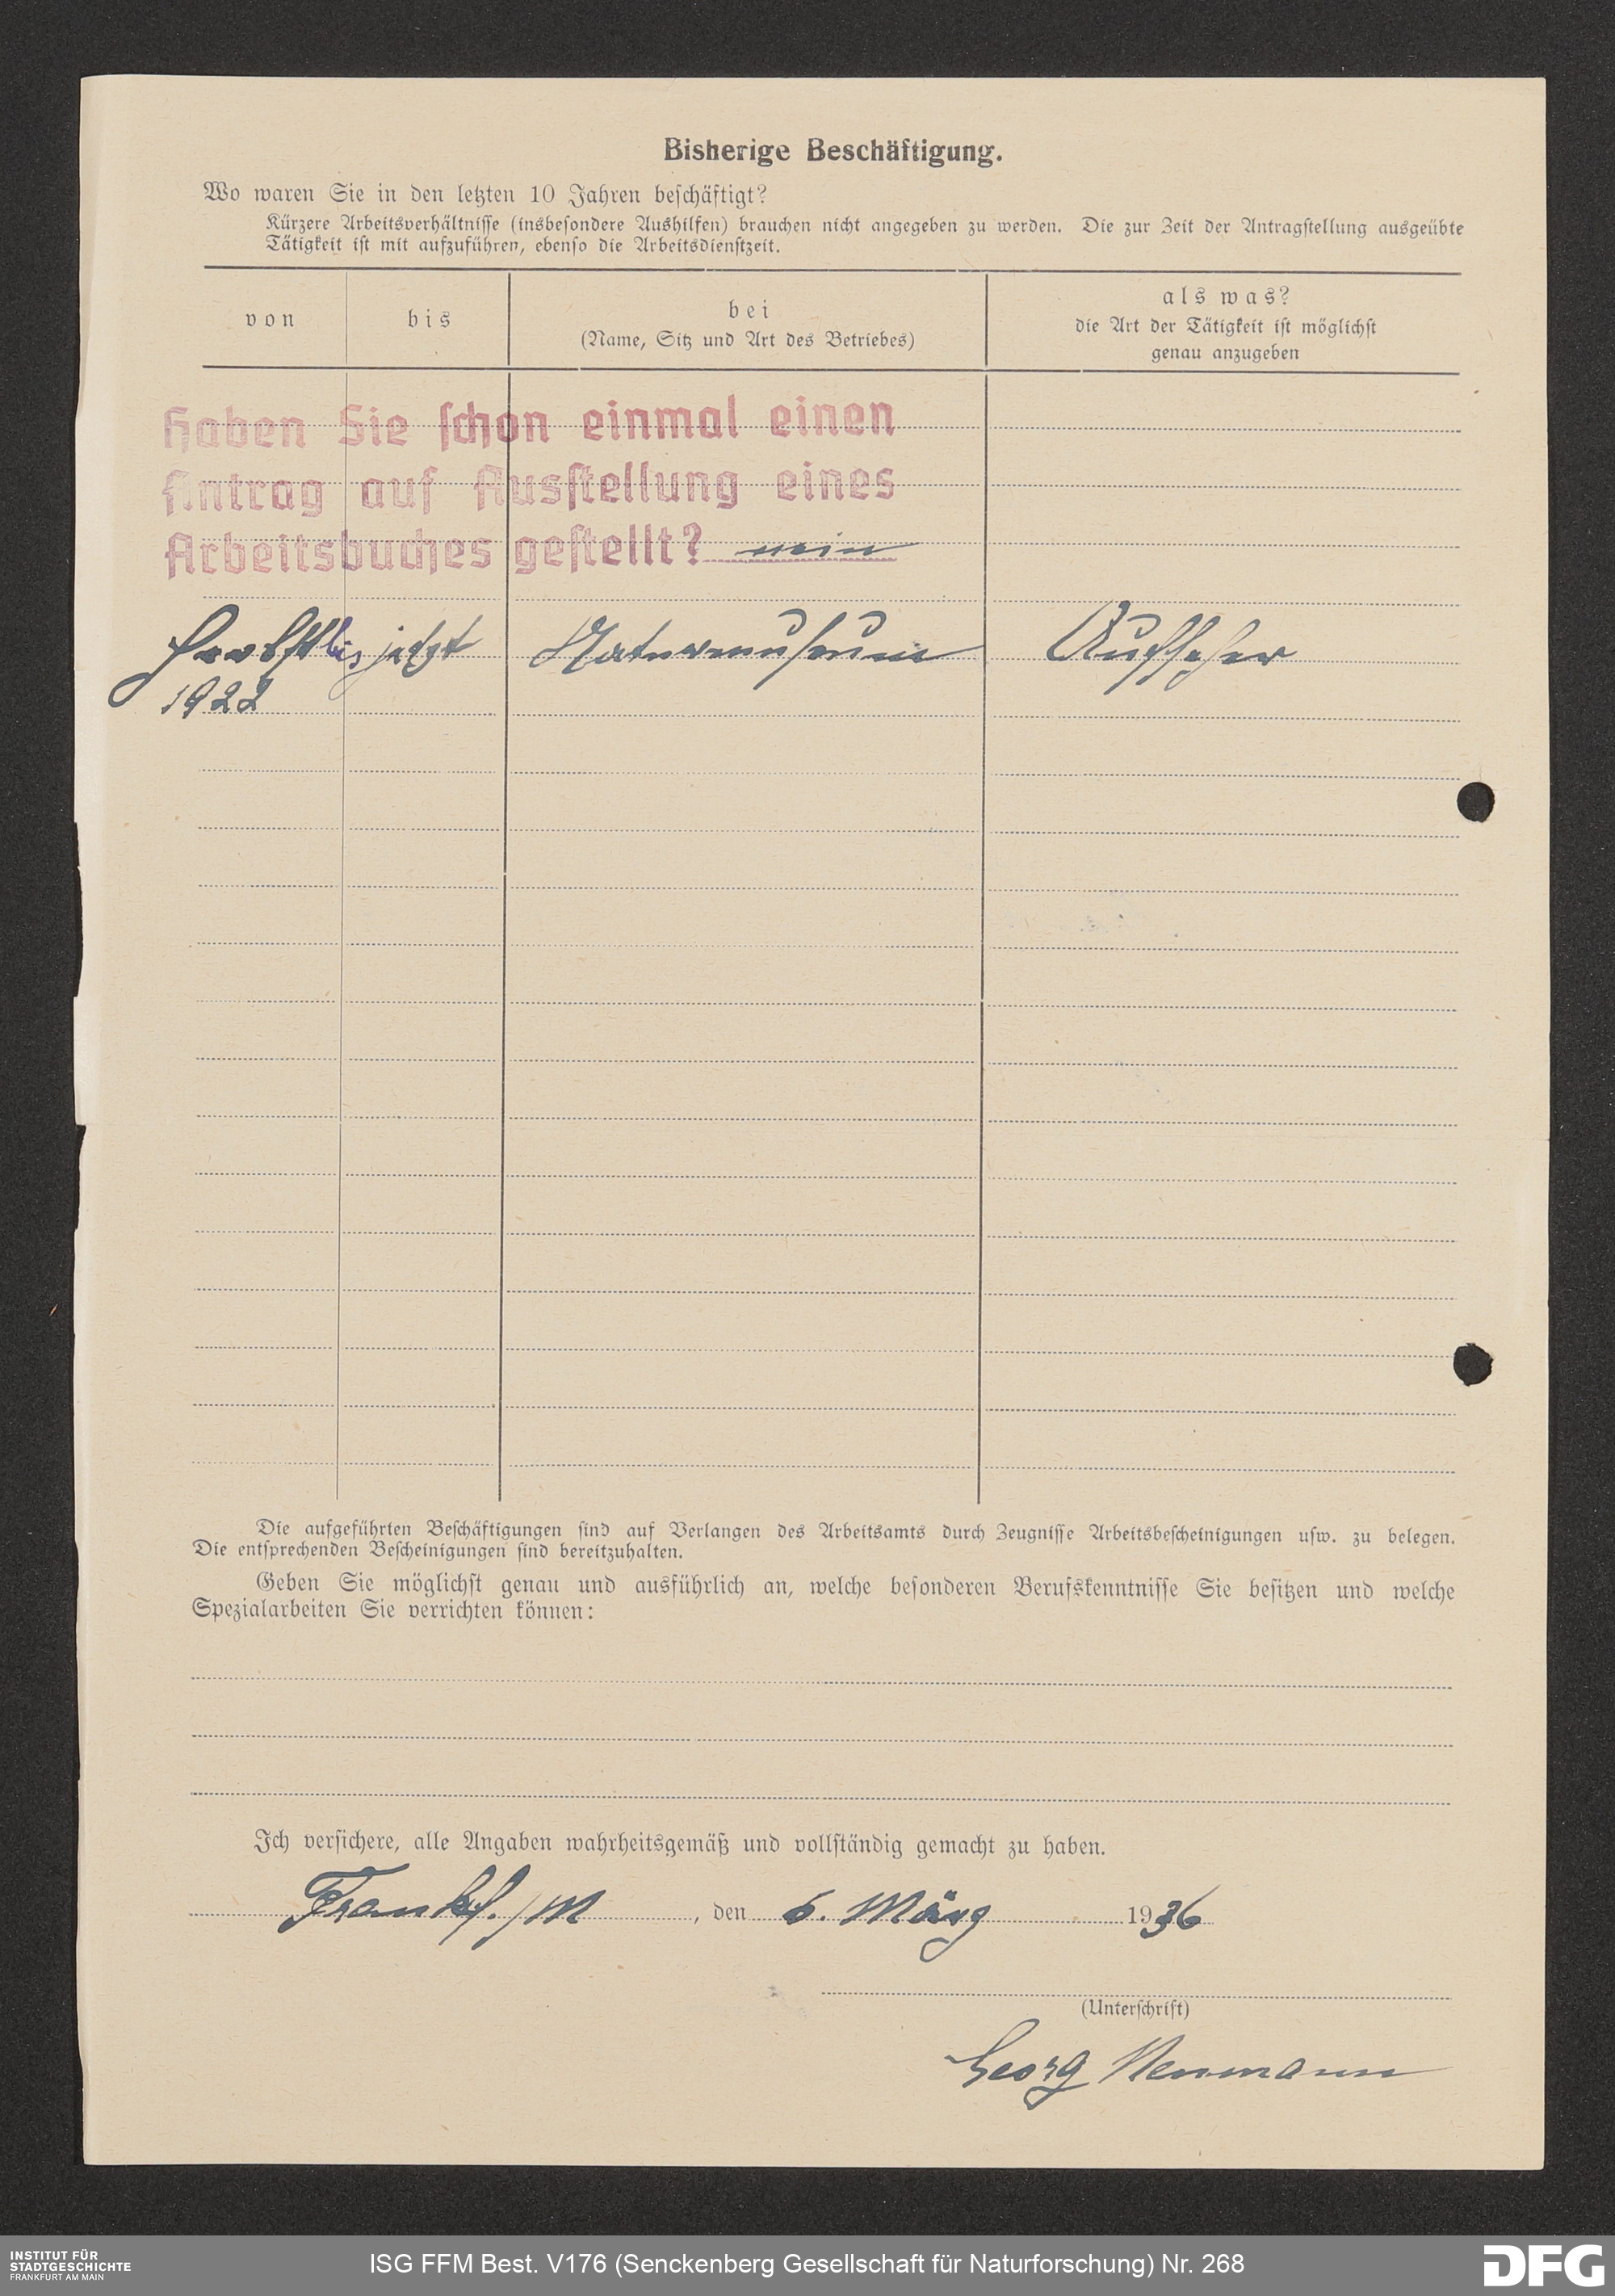 Bisherige Beschäftigung.
Wo waren Sie in den letzten 10 Jahren beschäftigt?
Kürzere Arbeitsverhältnisse (insbesondere Aushilfen) brauchen nicht angegeben zu werden. Die zur Zeit der Antragstellung ausgeübte
Tätigkeit ist mit aufzuführen, ebenso die Arbeitsdienstzeit.
von
bis
bei
(Name, Sitz und Art des Betriebes)
als was?
die Art der Tätigkeit ist möglichst
genau anzugeben
Haben Sie schon einmal einen
Antrag auf Ausstellung eines
Arbeitsbuches gestellt? nein
Herbst bis jetzt Naturmuseum Aufseher
1922
Die aufgeführten Beschäftigungen sind auf Verlangen des Arbeitsamts durch Zeugnisse Arbeitsbescheinigungen usw. zu belegen.
Die entsprechenden Bescheinigungen sind bereitzuhalten.
Geben Sie möglichst genau und ausführlich an, welche besonderen Berufskenntnisse Sie besitzen und welche
Spezialarbeiten Sie verrichten können:
Ich versichere, alle Angaben wahrheitsgemäß und vollständig gemacht zu haben.
Frankf./M, den 6. März 1936
(Unterschrift)
Georg Neumann
INSTITUT FÜR
STADTGESCHICHTE
FRANKFURT AM MAIN
ISG FFM Best. V176 (Senckenberg Gesellschaft für Naturforschung) Nr. 268
DFG